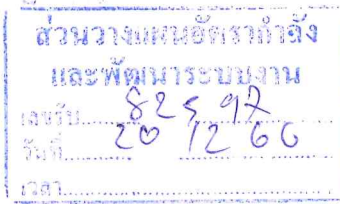 ส่วนวางแผนอัตรากำลัง
และพัฒนาระบบงาน
เลขรับ.....82597
วันที่.....20 12 60
เวลา.....